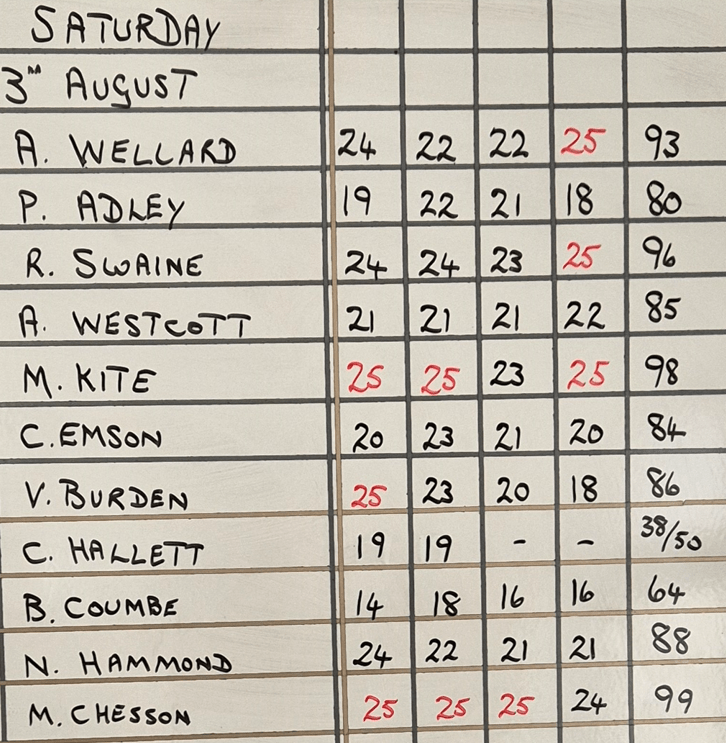 SATURDAY
3RD AUGUST
A. WELLARD 24 22 22 25 93
P. ADLEY 19 22 21 18 80
R. SWAINE 24 24 23 25 96
A. WESTCOTT 21 21 21 22 85
M. KITE 25 25 23 25 98
C. EMSON 20 23 21 20 84
V. BURDEN 25 23 20 18 86
C. HALLETT 19 19 - - 38/50
B. COUMBE 14 18 16 16 64
N. HAMMOND 24 22 21 21 88
M. CHESSON 25 25 25 24 99